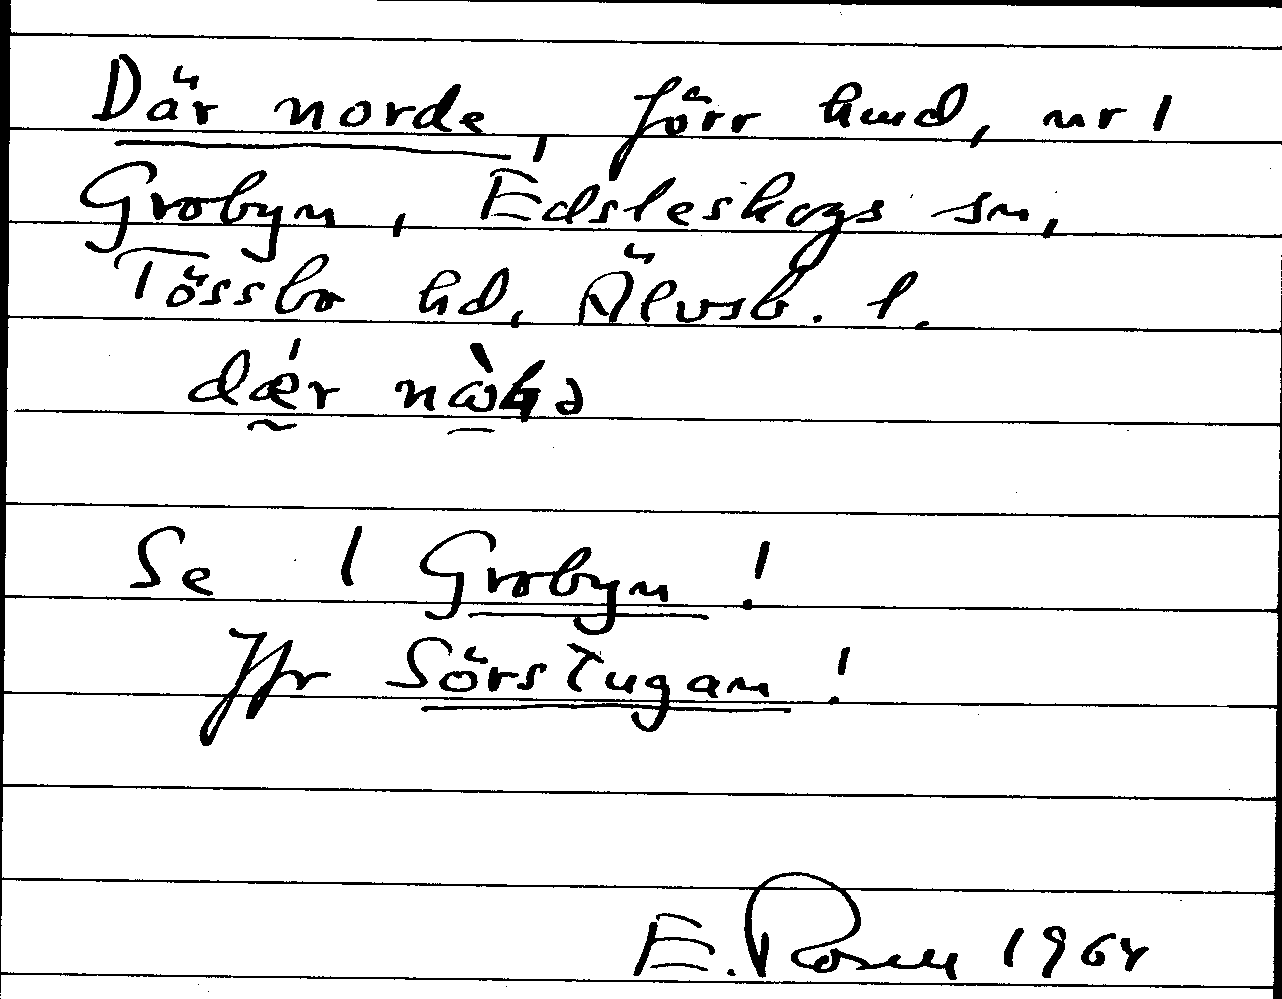 Där norde, förr hmd, nr 1
Grobyn, Edsleskogs sn,
Tössbo hd, Älvsb. l.
dær
Se 1 Grobyn!
Jfr Sörstugan!
E. Rosell 1964